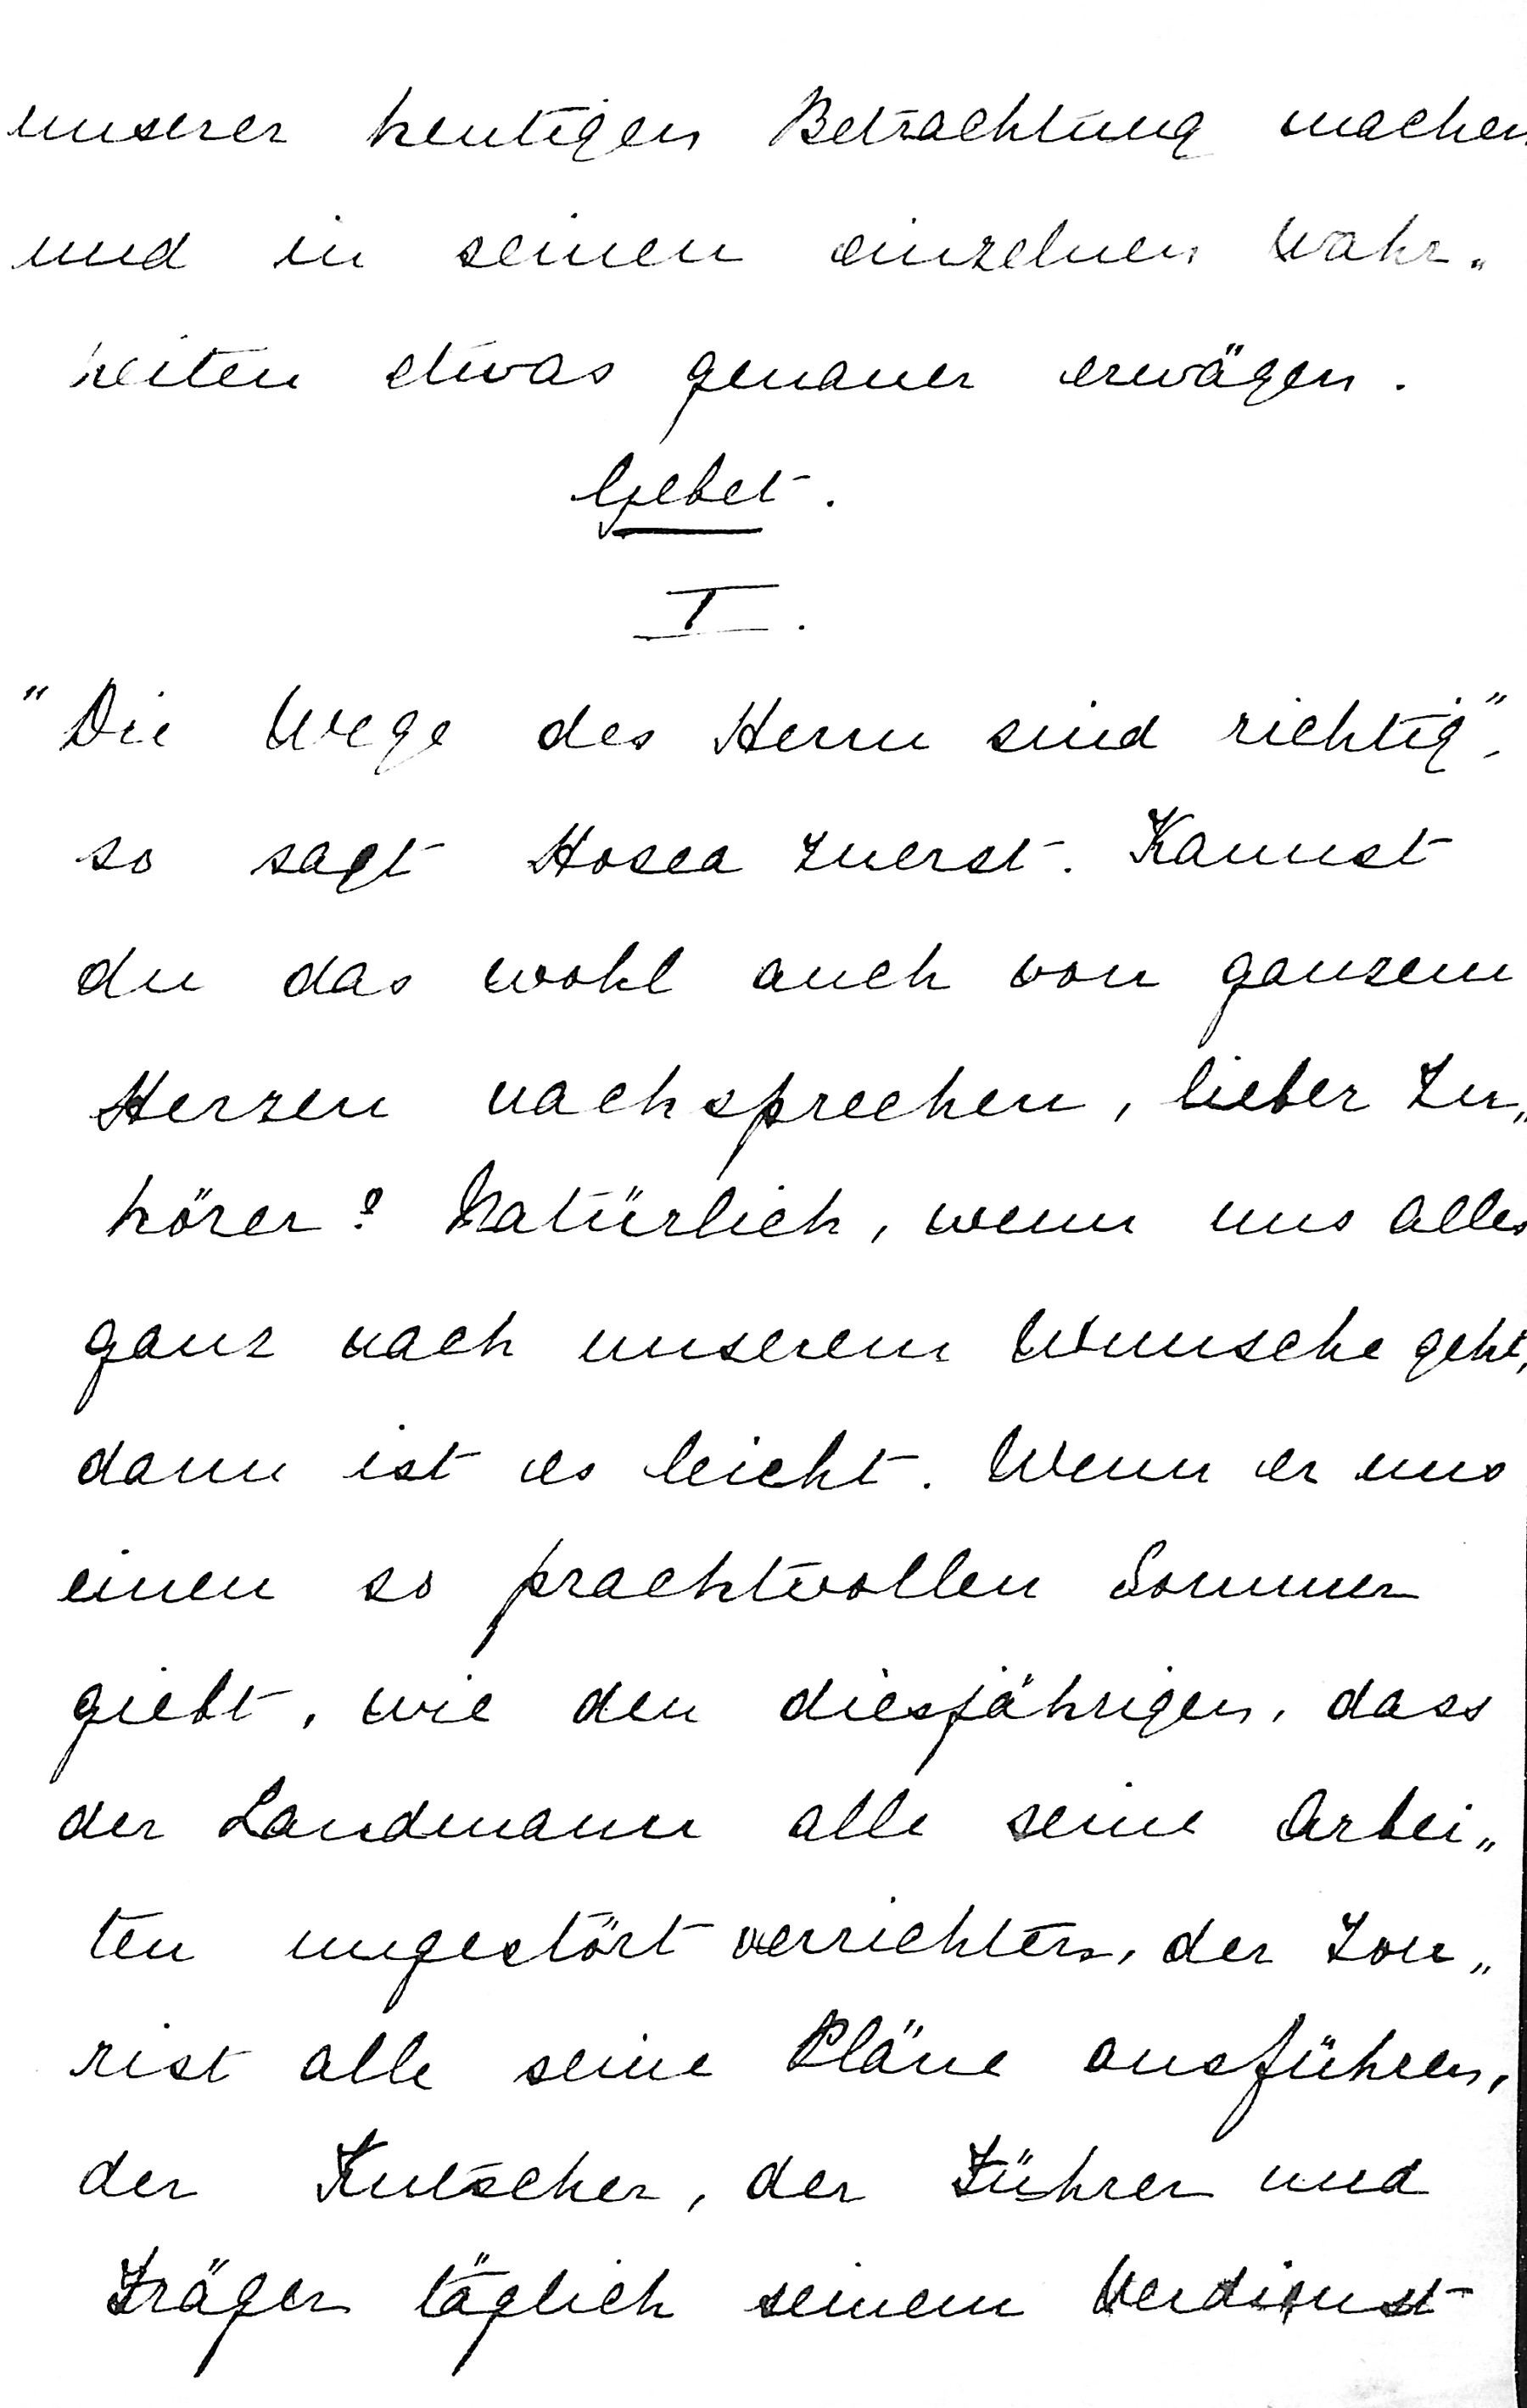 unserer heutigen Betrachtung machen
und in seinen einzelnen Wahr„
heiten etwas genauer erwägen.
Gebet.
I.
"Die Wege des Herrn sind richtig",
so sagt Hosea zuerst. Kannst
du das wohl auch von ganzem
Herzen nachsprechen, lieber Zu„
hörer? Natürlich, wenn uns alles
ganz nach unserem Wunsche geht,
dann ist es leicht. Wenn er uns
einen so prachtvollen Sommer
giebt, wie den diesjährigen, dass
der Landmann alle seine Arbei„
ten ungestört verrichten, der Tou„
rist alle seine Pläne ausführen,
der Kutscher, der Führer und
Träger täglich seinem Verdienst